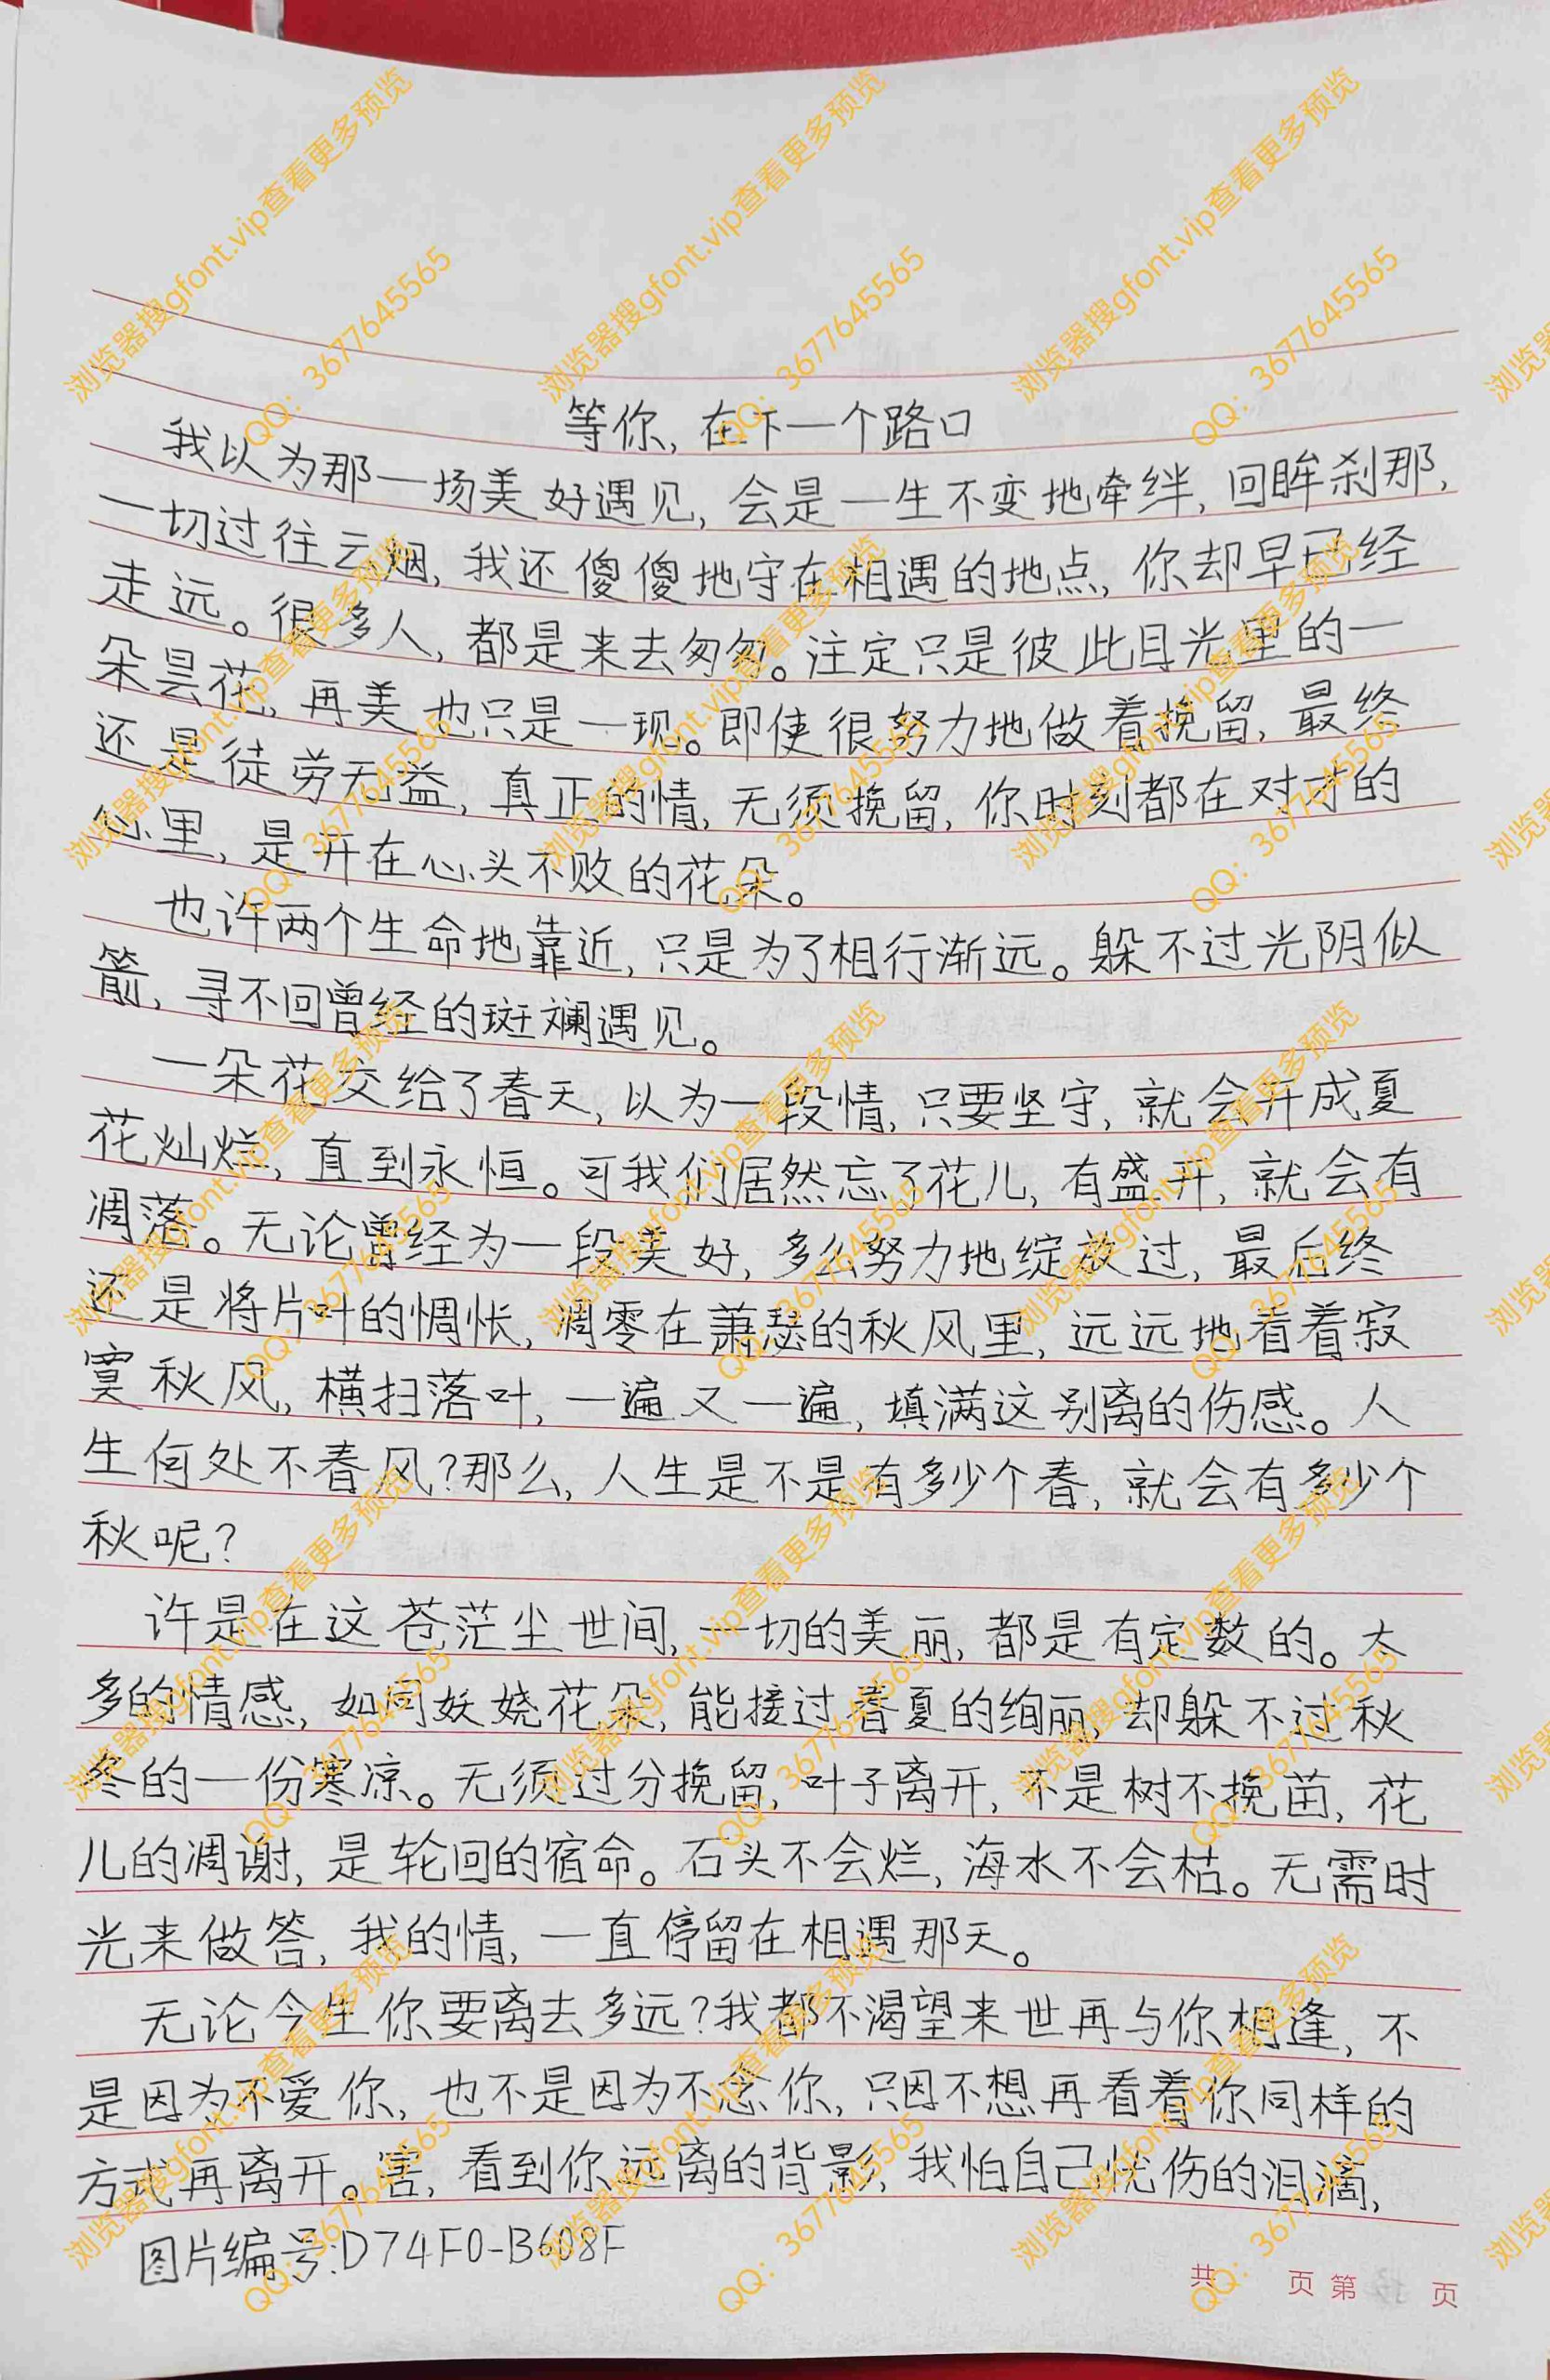 等你,在下一个路口
我以为那一场美好遇见,会是一生不变地牵绊,回眸刹那,
一切过往云烟,我还傻傻地守在相遇的地点,你却早已经
走远。很多人,都是来去匆匆。注定只是彼此目光里的一
朵昙花,再美也只是一现。即使很努力地做着挽留,最终
还是徒劳无益,真正的情,无须挽留,你时刻都在对才的
心里,是开在心头不败的花朵。
也许两个生命地靠近,只是为了相行渐远。躲不过光阴似
箭,寻不回曾经的斑斓遇见。
一朵花交给了春天,以为一段情,只要坚守,就会开成夏
花灿烂,直到永恒。可我们居然忘了花儿,有盛开,就会有
凋落。无论曾经为一段美好,多么努力地绽放过,最后终
还是将片叶的惆怅,凋零在萧瑟的秋风里,远远地看着寂
寞秋风,横扫落叶,一遍又一遍,填满这别离的伤感。人
生何处不春风?那么,人生是不是有多少个春,就会有多少个
秋呢?
许是在这苍茫尘世间,一切的美丽,都是有定数的。太
多的情感,如同妖娆花朵,能接过春夏的绚丽,却躲不过秋
冬的一份寒凉。无须过分挽留,叶子离开,不是树不挽茴,花
儿的凋谢,是轮回的宿命。石头不会烂,海水不会枯。无需时
光来做答,我的情,一直停留在相遇那天。
无论今生你要离去多远?我都不渴望来世再与你相逢,不
是因为不爱你,也不是因为不念你,只因不想再看着你同样的
方式再离开。害,看到你远离的背影,我怕自己忧伤的泪滴,
图片编号:D74F0-B608F
共 页 第 页
浏览器搜gfont.vip查看更多预览
QQ: 3677645565